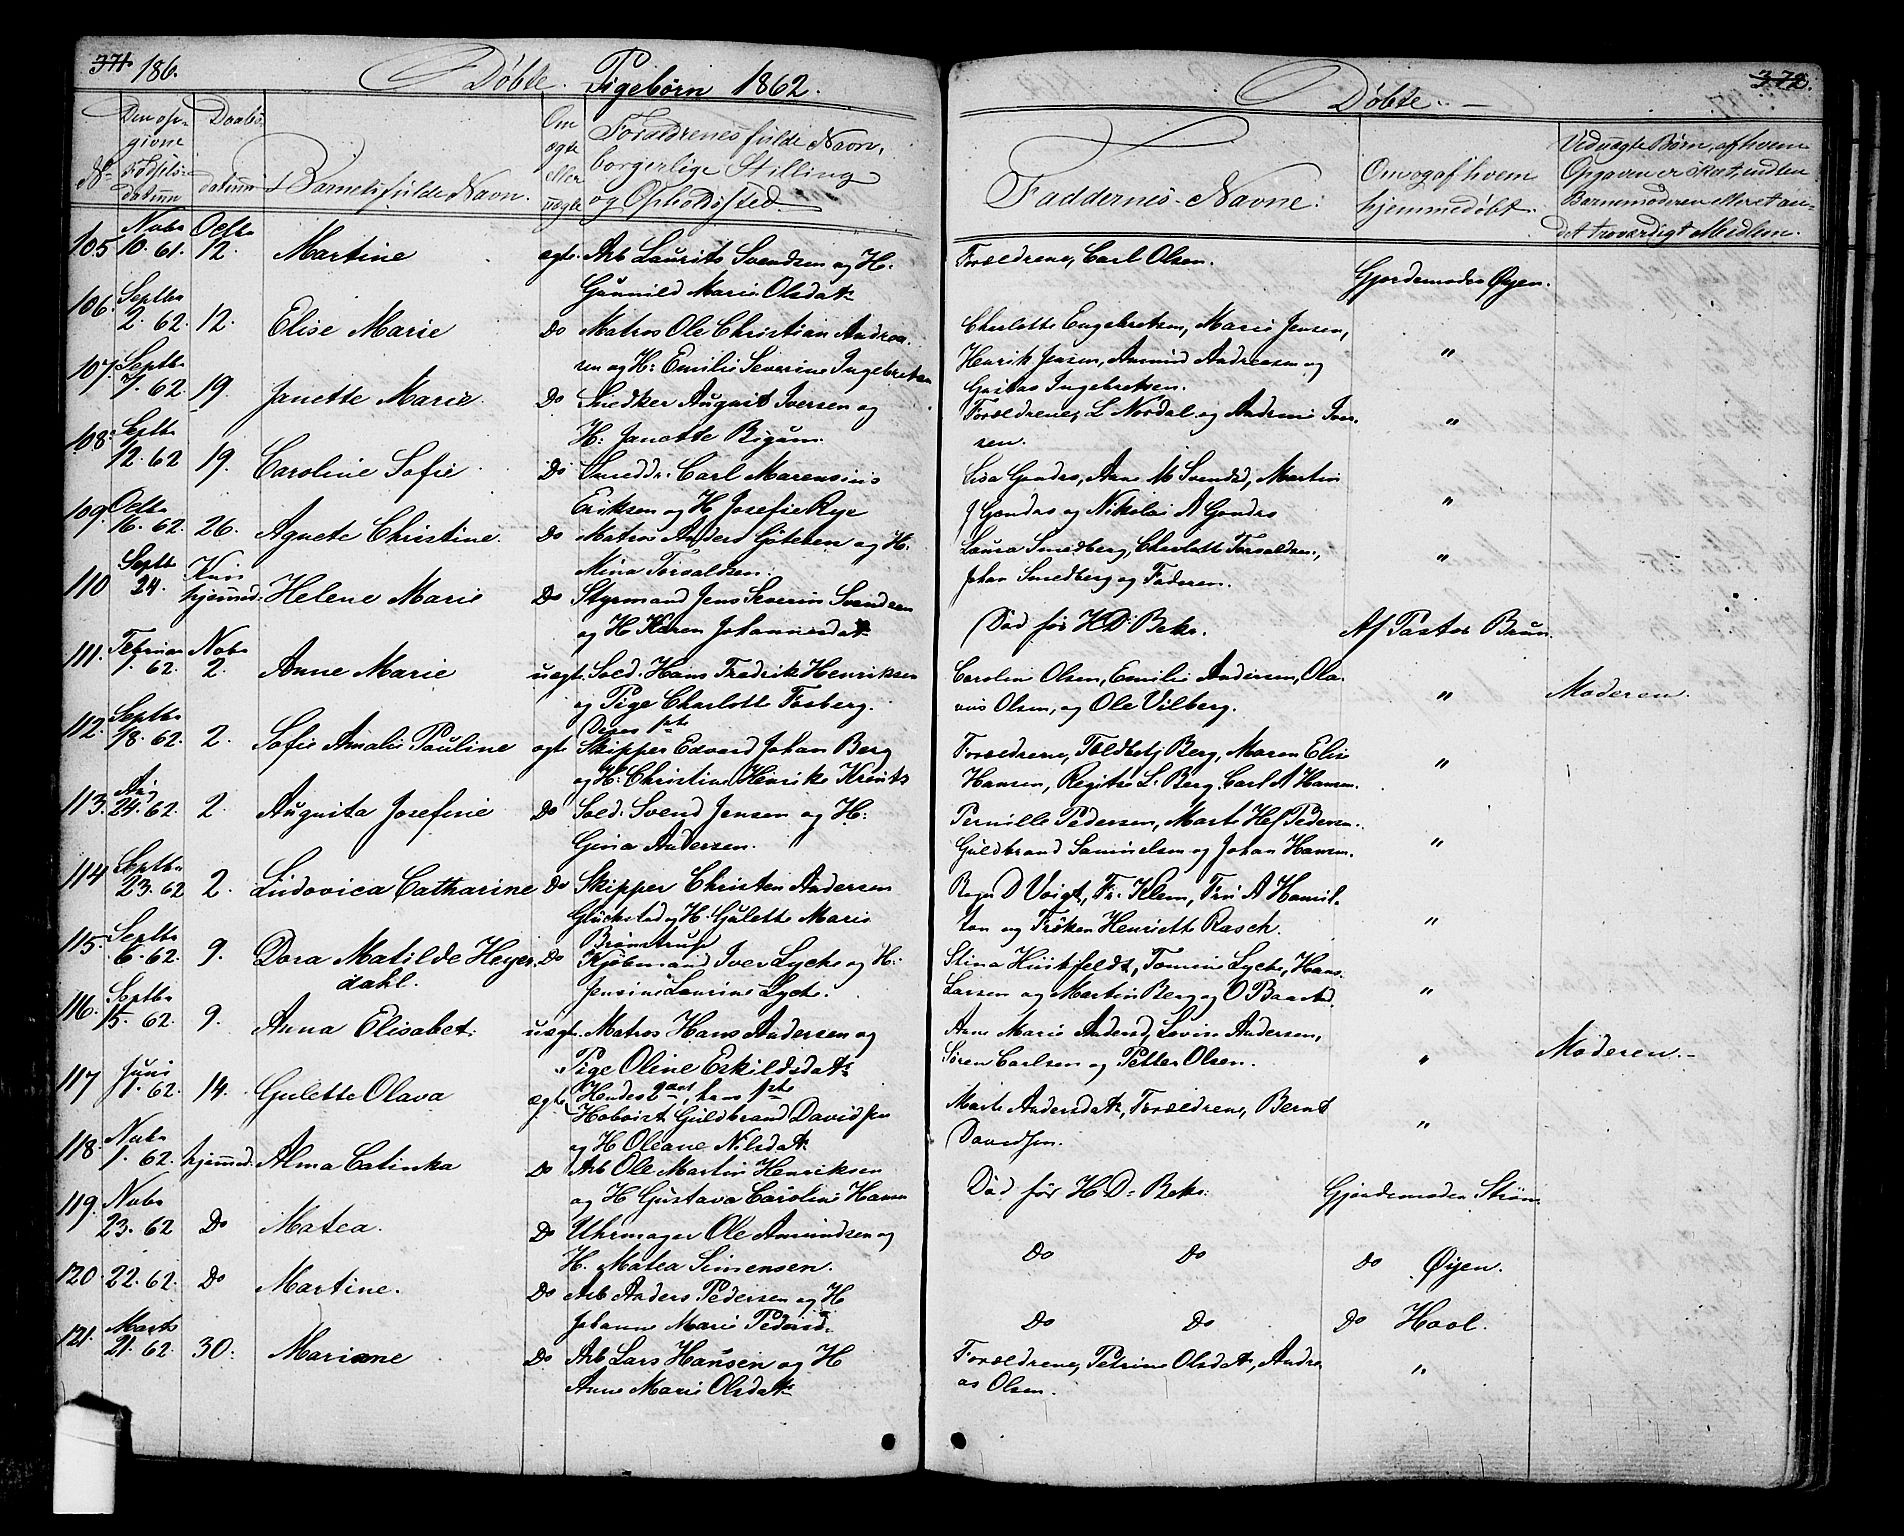 371. 186. Døbte Pigebørn 1862.
Døbte. 372.
No Den opgivne Fødselsdatum Daabsdatum Barnets fulde Navn. Om ægte eller uægte Forældrenes fulde Navn, borgerlige Stilling og Opholdssted.
Faddernes Navne: Om og af hvem hjemmedøbt. Ved uægte Børn, af hvem Opgaven er skeet, enten Barnemoderen eller et andet troværdigt Medlem.
105 Novbr 10. 61. Octbr 12. Martine ægte. Arb Laurits Svendsen og H: Gunnild Marie Olsdatr Forældrene, Carl Olsen. Gjordemoder Øyen.
106. Septbr 2. 62. 12. Elise Marie Do Matros Ole Christian Andreasen og H: Emilie Severine Ingebretsen Charlotte Engebretsen, Marie Jensen, Henrik Jensen, Amund Andreasen og Gustav Ingebretsen. "
107. Septbr 7. 62. 19. Janette Marie. Do Snedker August Iversen og H: Janette Bigum. Forældrene, L Nordal og Andrine Iversen. "
108. Septbr 12. 62 19. Caroline Sofie Do Smeddr. Carl Marensius Eriksen og H Josefie Rye Lisa Gundes, Anne M Svendsd, Martin J Gundes og Nikolai A Gundes "
109. Octbr 16. 62. 26. Agnete Christine. Do Matros Anders Gutesen og H: Mina Torvaldsen. Laura Smedberg, Charlotte Torvaldsen, Johan Smedberg og Faderen. "
110 Septbr 24. Kun hjemmed: Helene Marie Do Styrmand Jens Severin Svendsen og H Karen Johannesdatr Død før H. D. Bekr. Af Pastor Brun.
111. Februar 1. 62. Novbr 2. Anne Marie uægte. Sold. Hans Fredrik Henriksen og Pige Charlotte Fosberg. Deres 1ste Carolin Olsen, Emilie Andersen, Olavus Olsen, og Ole Vilberg. " Moderen.
112. Septbr 18. 62. 2. Sofie Amalie Pauline ægte Skipper Edvard Johan Berg og H: Christine Henrike Krints Forældrene, Toldbetj Berg, Maren Elise Hansen, Regitse L. Berg, Carl A Hansen. "
113. Aug 24. 62. 2. Augusta Josefine Do Sold. Svend Jensen og H: Gina Andersen. Pernille Pedersen, Marte Hel Pedersen. Guldbrand Samuelsen og Johan Hansen. "
114 Septbr 23. 62 2. Ludovica Catharine Do Skipper Christen Andersen Glückstad og H. Gulette Marie Brønstrup D Voigt, Fr. Klem, Fru A Hamilton og Frøken Henriette Rasch. "
115. Septbr 6. 62. 9. Dora Matilde Heyerdahl. Do Kjøbmand Iver Lyche og H: Jensine Laurine Lych. Stina Huitfeldt, Tomine Lyche, Hans Larsen og Martin Berg og O Baastd. "
116. Septbr 15. 62. 9. Anna Elisabet. uægt. Matros Hans Andersen og Pige Oline Eskildsdatr Hendes 2den, hans 1ste Anne Marie Andersd, Lovise Andersen, Søren Carlsen og Petter Olsen. " Moderen.
117 Juni 1. 62. 14. Gulette Olava ægte Hoboist Guldbrand Davidsen og H Oleane Nilsdatr Marte Andersdatr, Forældrene, Bernt Davidsen. "
118. Novbr 1. 62. hjemmed. Alma Catinka Do Arb Ole Martin Henriksen og H Gustava Caroline Hansen Død før H. D. Bekr: Gjordemoder Strøm
119. Novbr 23. 62 Do Matea. Do Uhrmager Ole Amundsen og H. Matea Simensen. Do Do Do Øyen.
120. 22. 62. Do Martine. Do Arb Anders Pedersen og H Johanne Marie Pedersd. Do Do Do Hool.
121. Marts 21. 62. 30. Mariane Do Arb Lars Hansen og H Anne Marie Olsdatr Forældrene, Petrine Olsdatr, Andreas Olsen. "